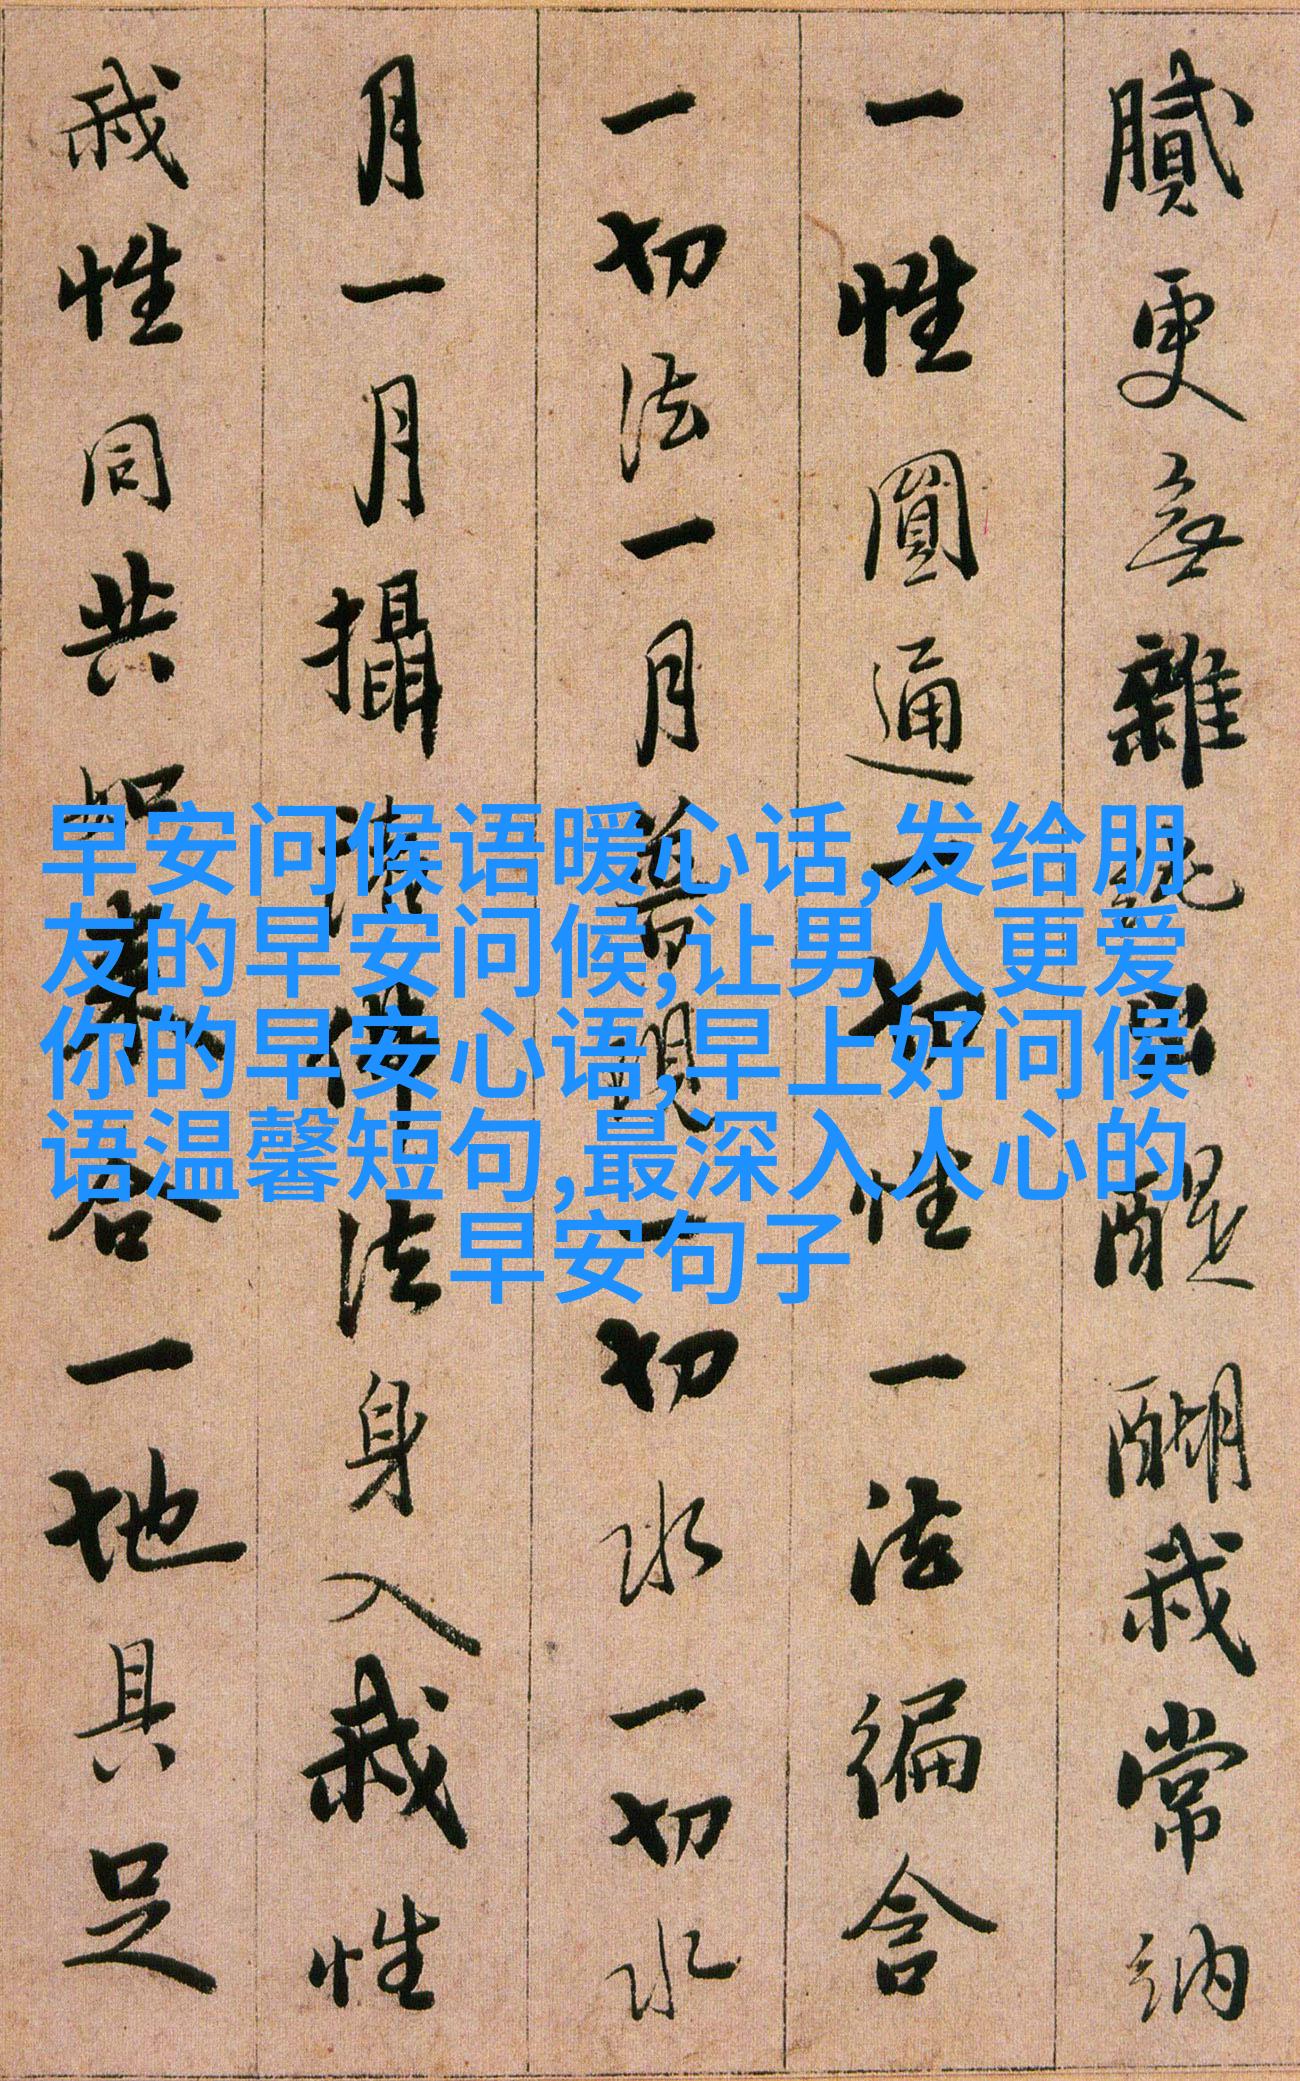 膩更無雜純出醍醐我常納
一性圓通一切性一法徧含
一切法一月普現一切水一切水
月一月攝諸佛法身入我性
我性同共如來合一地具足
早安问候语暖心话,发给朋
友的早安问候,让男人更爱
你的早安心语,早上好问候
语温馨短句,最深入人心的
早安句子